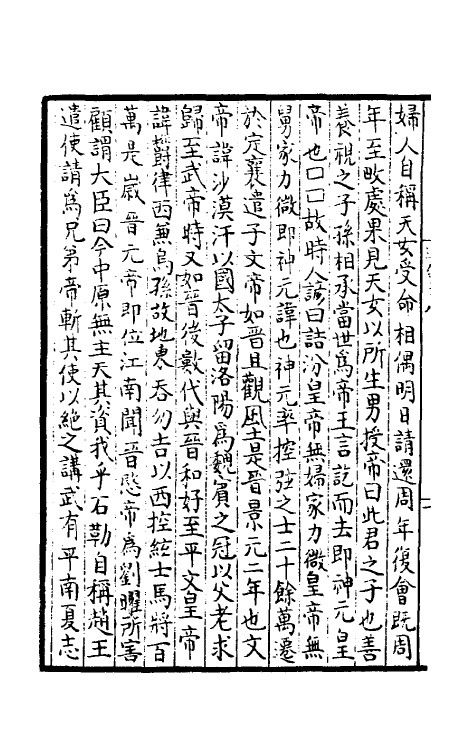 婦人自稱天女受命相偶明日請還周年復會既周
年至畋處果見天女以所生男授帝曰此君之子也善
養視之子孫相承當世爲帝王言訖而去即神元皇
帝也口口故時人諺曰詰汾皇帝無婦家力微皇帝無
舅家力微即神元諱也神元率控弦之士二十餘萬遷
於定襄遣子文帝如晉且觀風土是晉景元二年也文
帝諱沙漠汗以國太子留洛陽爲魏賓之冠以父老求
歸至武帝時又如晉後數代與晉和好至平文皇帝
諱欝律西兼烏孫故地東吞勿吉以西控絃士馬將百
萬是歲晉元帝即位江南聞晉愍帝爲劉曜所害
顧謂大臣曰今中原無主天其資我乎石勒自稱趙王
遣使請爲兄弟帝斬其使以絶之講武有平南夏志